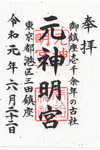 奉拝
御鎮座壱千余年の古社
元神明宮
東京都港区三田鎮座
令和元年六月二十二日